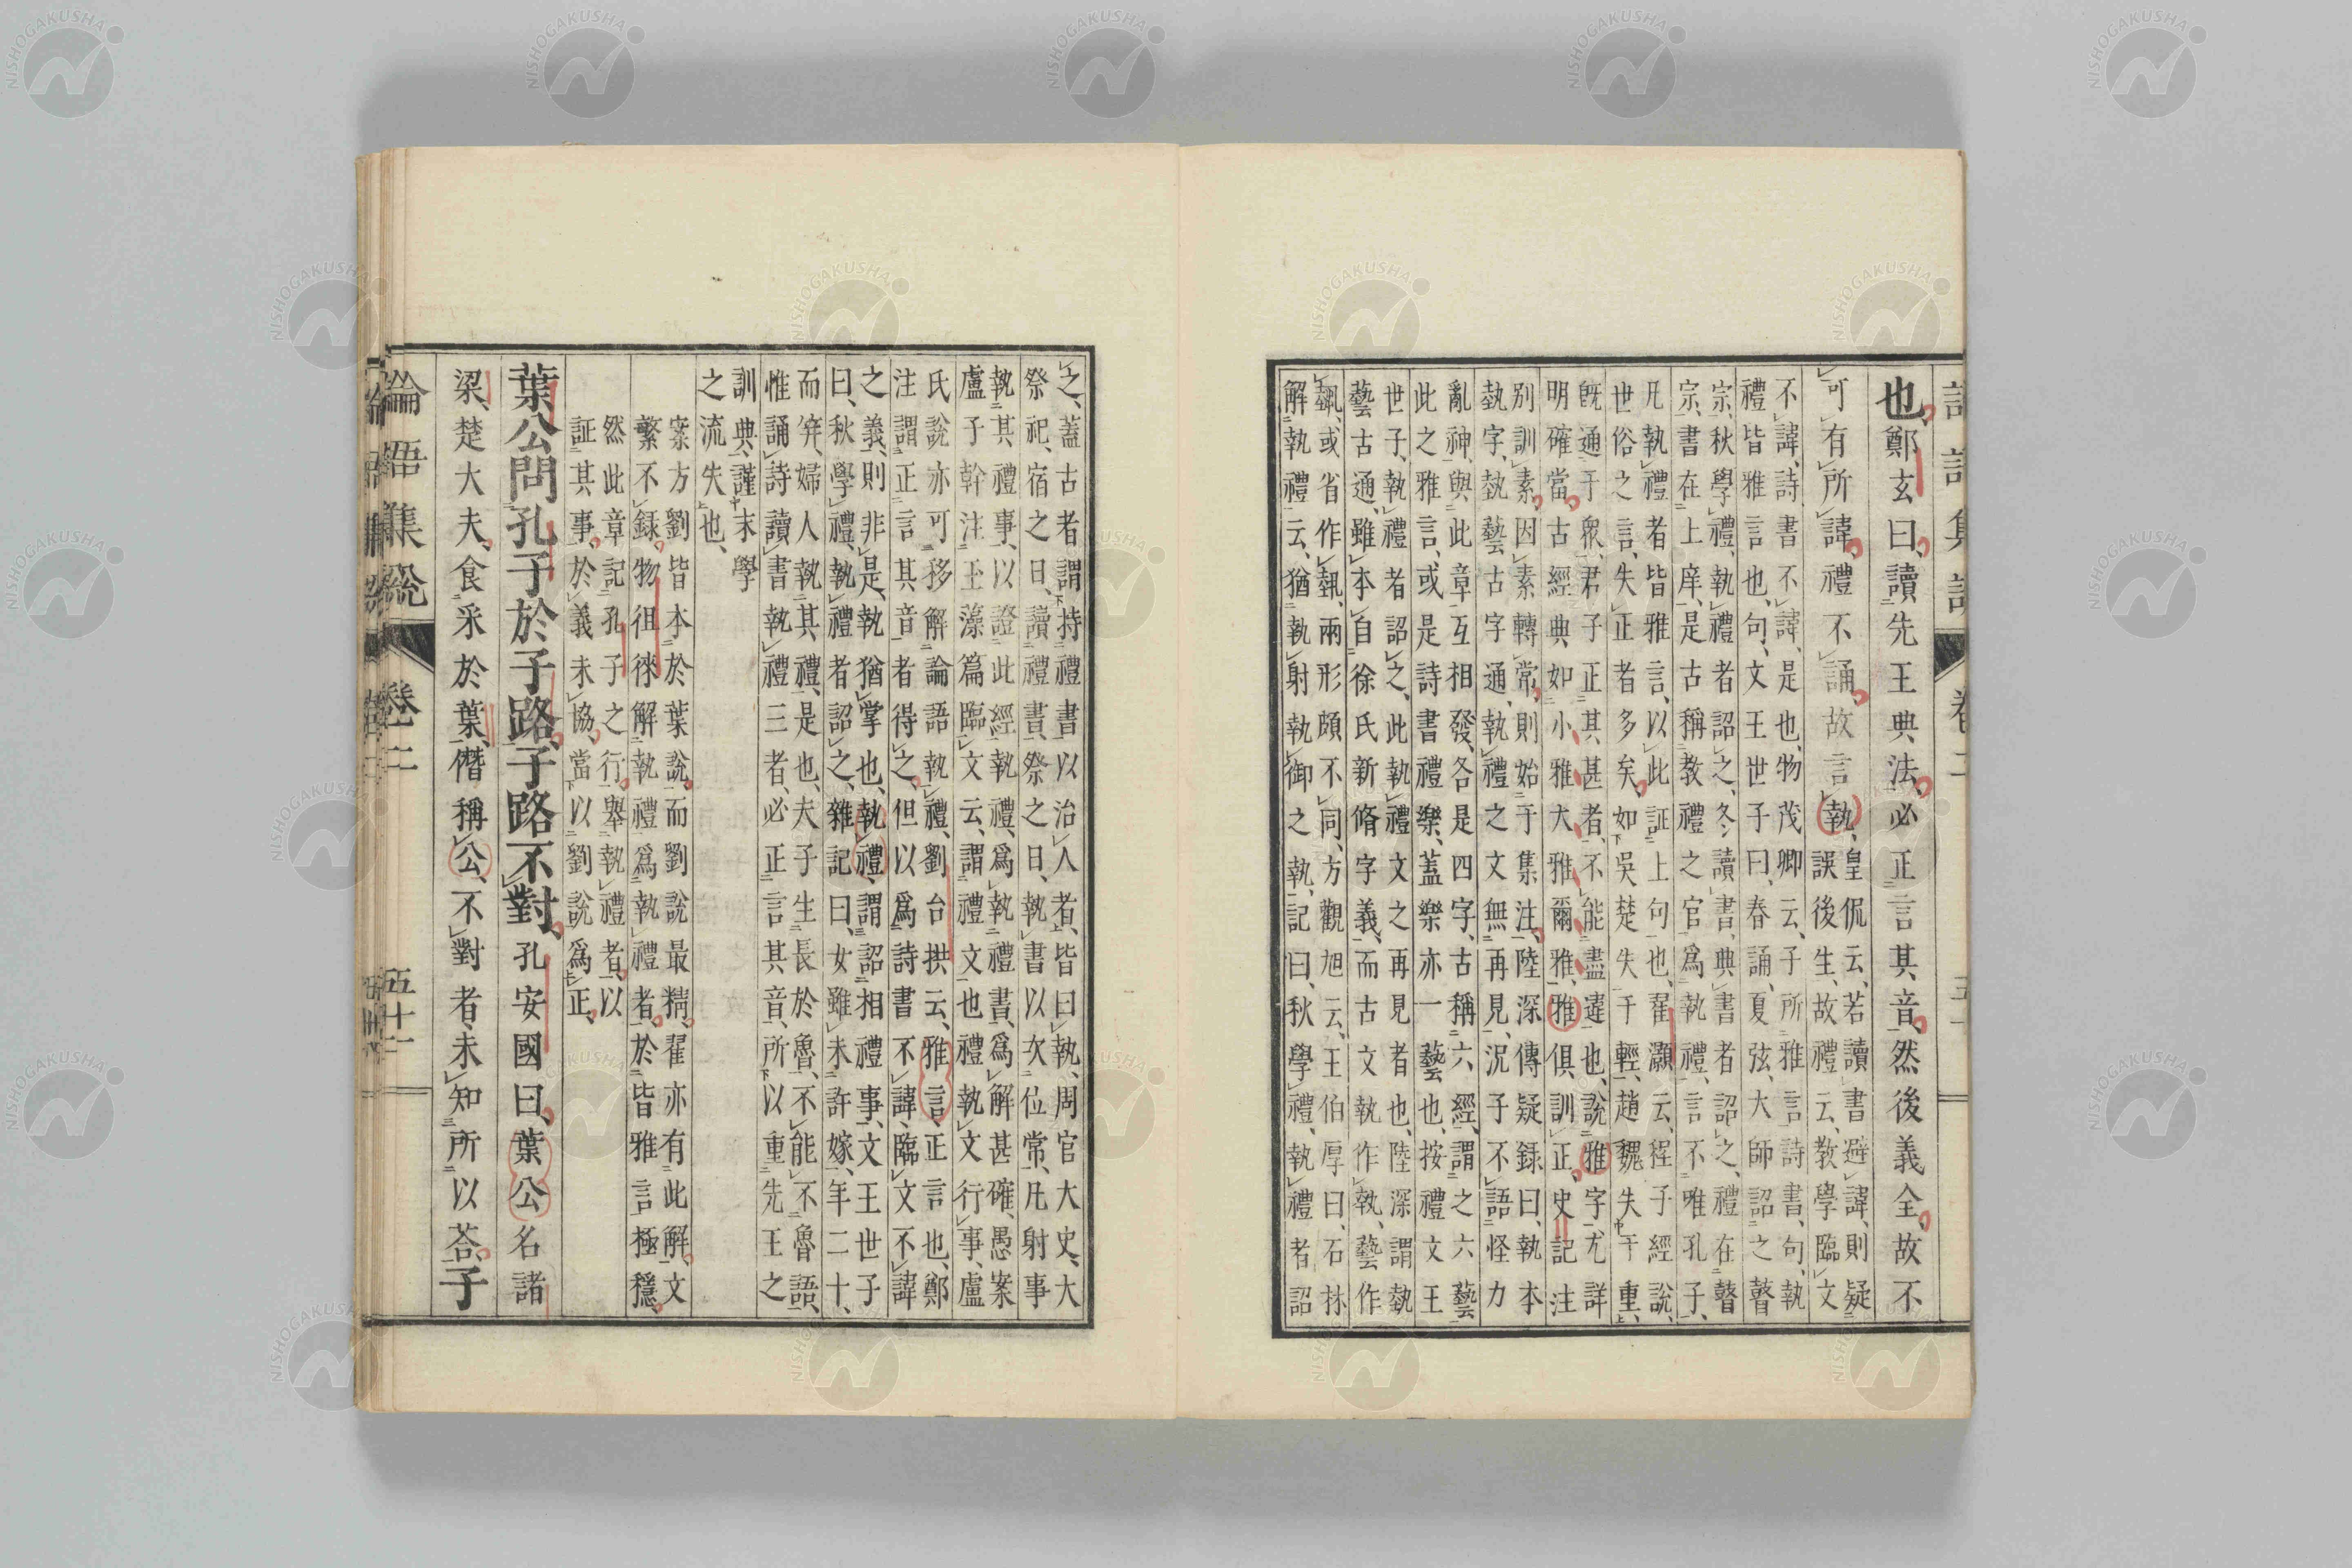 也鄭玄曰讀先王典法必正言其音然後義全故不
可有所諱禮不誦故言執皇侃云若讀書避諱則疑
誤後生故禮云教學臨文
不諱詩書不諱是也物茂卿云子所雅言詩書句執
禮皆雅言也句文王世子曰春誦夏弦大師詔之瞽
宗秋學禮執禮者詔之冬讀書典書者詔之禮在瞽
宗書在上庠是古稱教禮之官爲執禮言不唯孔子
凡執禮者皆雅言以此証上句也翟灝云程子經說
世俗之言失正者多矣如吳楚失于輕趙魏失于重
旣通于衆君子正其甚者不能盡違也說雅字尤詳
明確當古經典如小雅大雅爾雅雅俱訓正史記注
別訓素因素轉常則始于集注陸深傳疑錄曰執本
埶字埶藝古字通執禮之文無再見況子不語怪力
亂神與此章互相發各是四字古稱六經謂之六藝
此之雅言或是詩書禮樂蓋樂亦一藝也按禮文王
世子執禮者詔之此執禮文之再見者也陸深謂埶
藝古通雖本自徐氏新脩字義而古文執作執藝作
或省作埶兩形頗不同方觀旭云王伯厚曰石林
解執禮云猶執射執御之執記曰秋學禮執禮者詔
之蓋古者謂持禮書以治人者皆曰執周官大史大
祭祀宿之日讀禮書祭之日執書以次位常凡射事
執其禮事以證此經執禮爲執禮書爲解甚確愚案
盧子幹注王藻篇臨文云謂禮文也禮執文行事盧
氏說亦可移解論語執禮劉台拱云雅言正言也鄭
注謂正言其音者得之但以爲詩書不諱臨文不諱
之義則非是執猶掌也執禮謂詔相禮事文王世子
曰秋學禮執禮者詔之雜記曰女雖未許嫁年二十
而笄婦人執其禮是也夫子生長於魯不能不魯語
惟誦詩讀書執禮三者必正言其音所以重先王之
訓典謹末學
之流失也
案方劉皆本於葉說而劉說最精翟亦有此解文
繁不錄物徂徠解執禮爲執禮者於皆雅言極穩
然此章記孔子之行舉執禮者以
証其事於義未協當以劉說爲正
葉公問孔子於子路子路不對孔安國曰葉公名諸
梁楚大夫食釆於葉僭稱公不對者未知所以荅子
論語集說 卷二 五十二